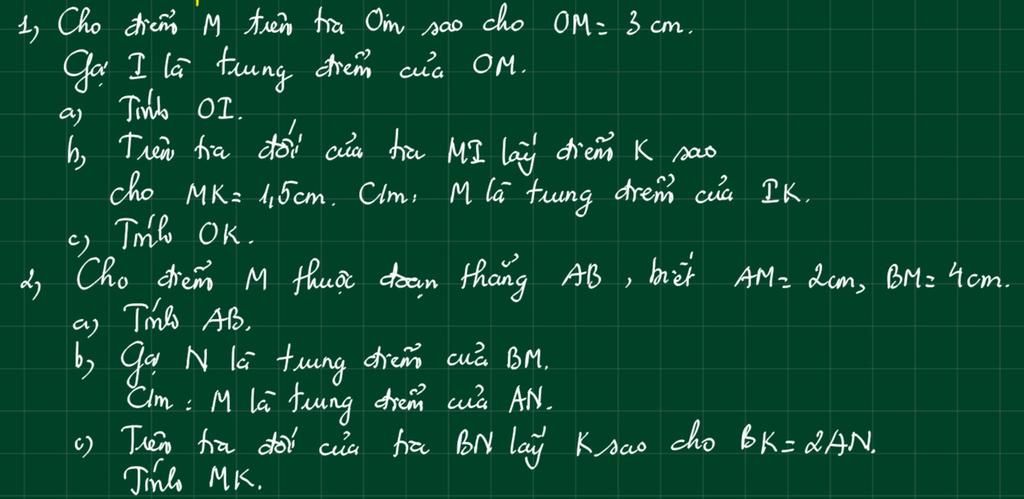 1, Cho điểm M trên tia Om sao cho OM = 3 cm.
Gọi I là trung điểm của OM.
a) Tính OI.
b, Trên tia đối của tia MI lấy điểm K sao
cho MK = 1,5cm. C/m: M là trung điểm của IK.
c) Tính OK.
2, Cho điểm M thuộc đoạn thẳng AB, biết AM = 2cm, BM = 4cm.
a) Tính AB.
b, Gọi N là trung điểm của BM.
C/m: M là trung điểm của AN.
c) Trên tia đối của tia BN lấy K sao cho BK = 2AN.
Tính MK.